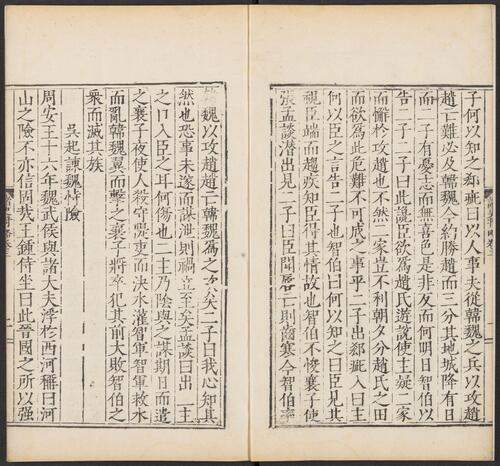 子何以知之郄疵曰以人事夫從韓魏之兵以攻趙
趙亡難必及韓魏今約勝趙而三分其地城降有日
而二子有憂志而無喜色是非反而何明日智伯以
告二子二子曰此讒臣欲爲趙氏遊說使主疑二家
而懈於攻趙也不然二家豈不利朝夕分趙氏之田
而欲爲此危難不可成之事乎二子出郄疵入曰主
何以臣之言告二子也智伯曰何以知之曰臣見其
視臣端而趨疾知臣得其情故也智伯不悛襄子使
張孟談潛出見二子曰臣聞唇亡則齒寒今智伯率
韓魏以攻趙趙亡韓魏爲之次矣二子曰我心知其
然也恐事未遂而謀泄則禍立至矣孟談曰出二主
之口入臣之耳何傷也二主乃陰與之謀期日而遣
之襄子夜使人殺守隄吏而決水灌智軍智軍救水
而亂韓魏翼而擊之襄子將卒犯其前大敗智伯之
衆而滅其族
吳起諫魏恃險
周安王十六年魏武侯與諸大夫浮於西河稱曰河
山之險不亦信固哉王鍾侍坐曰此晉國之所以強